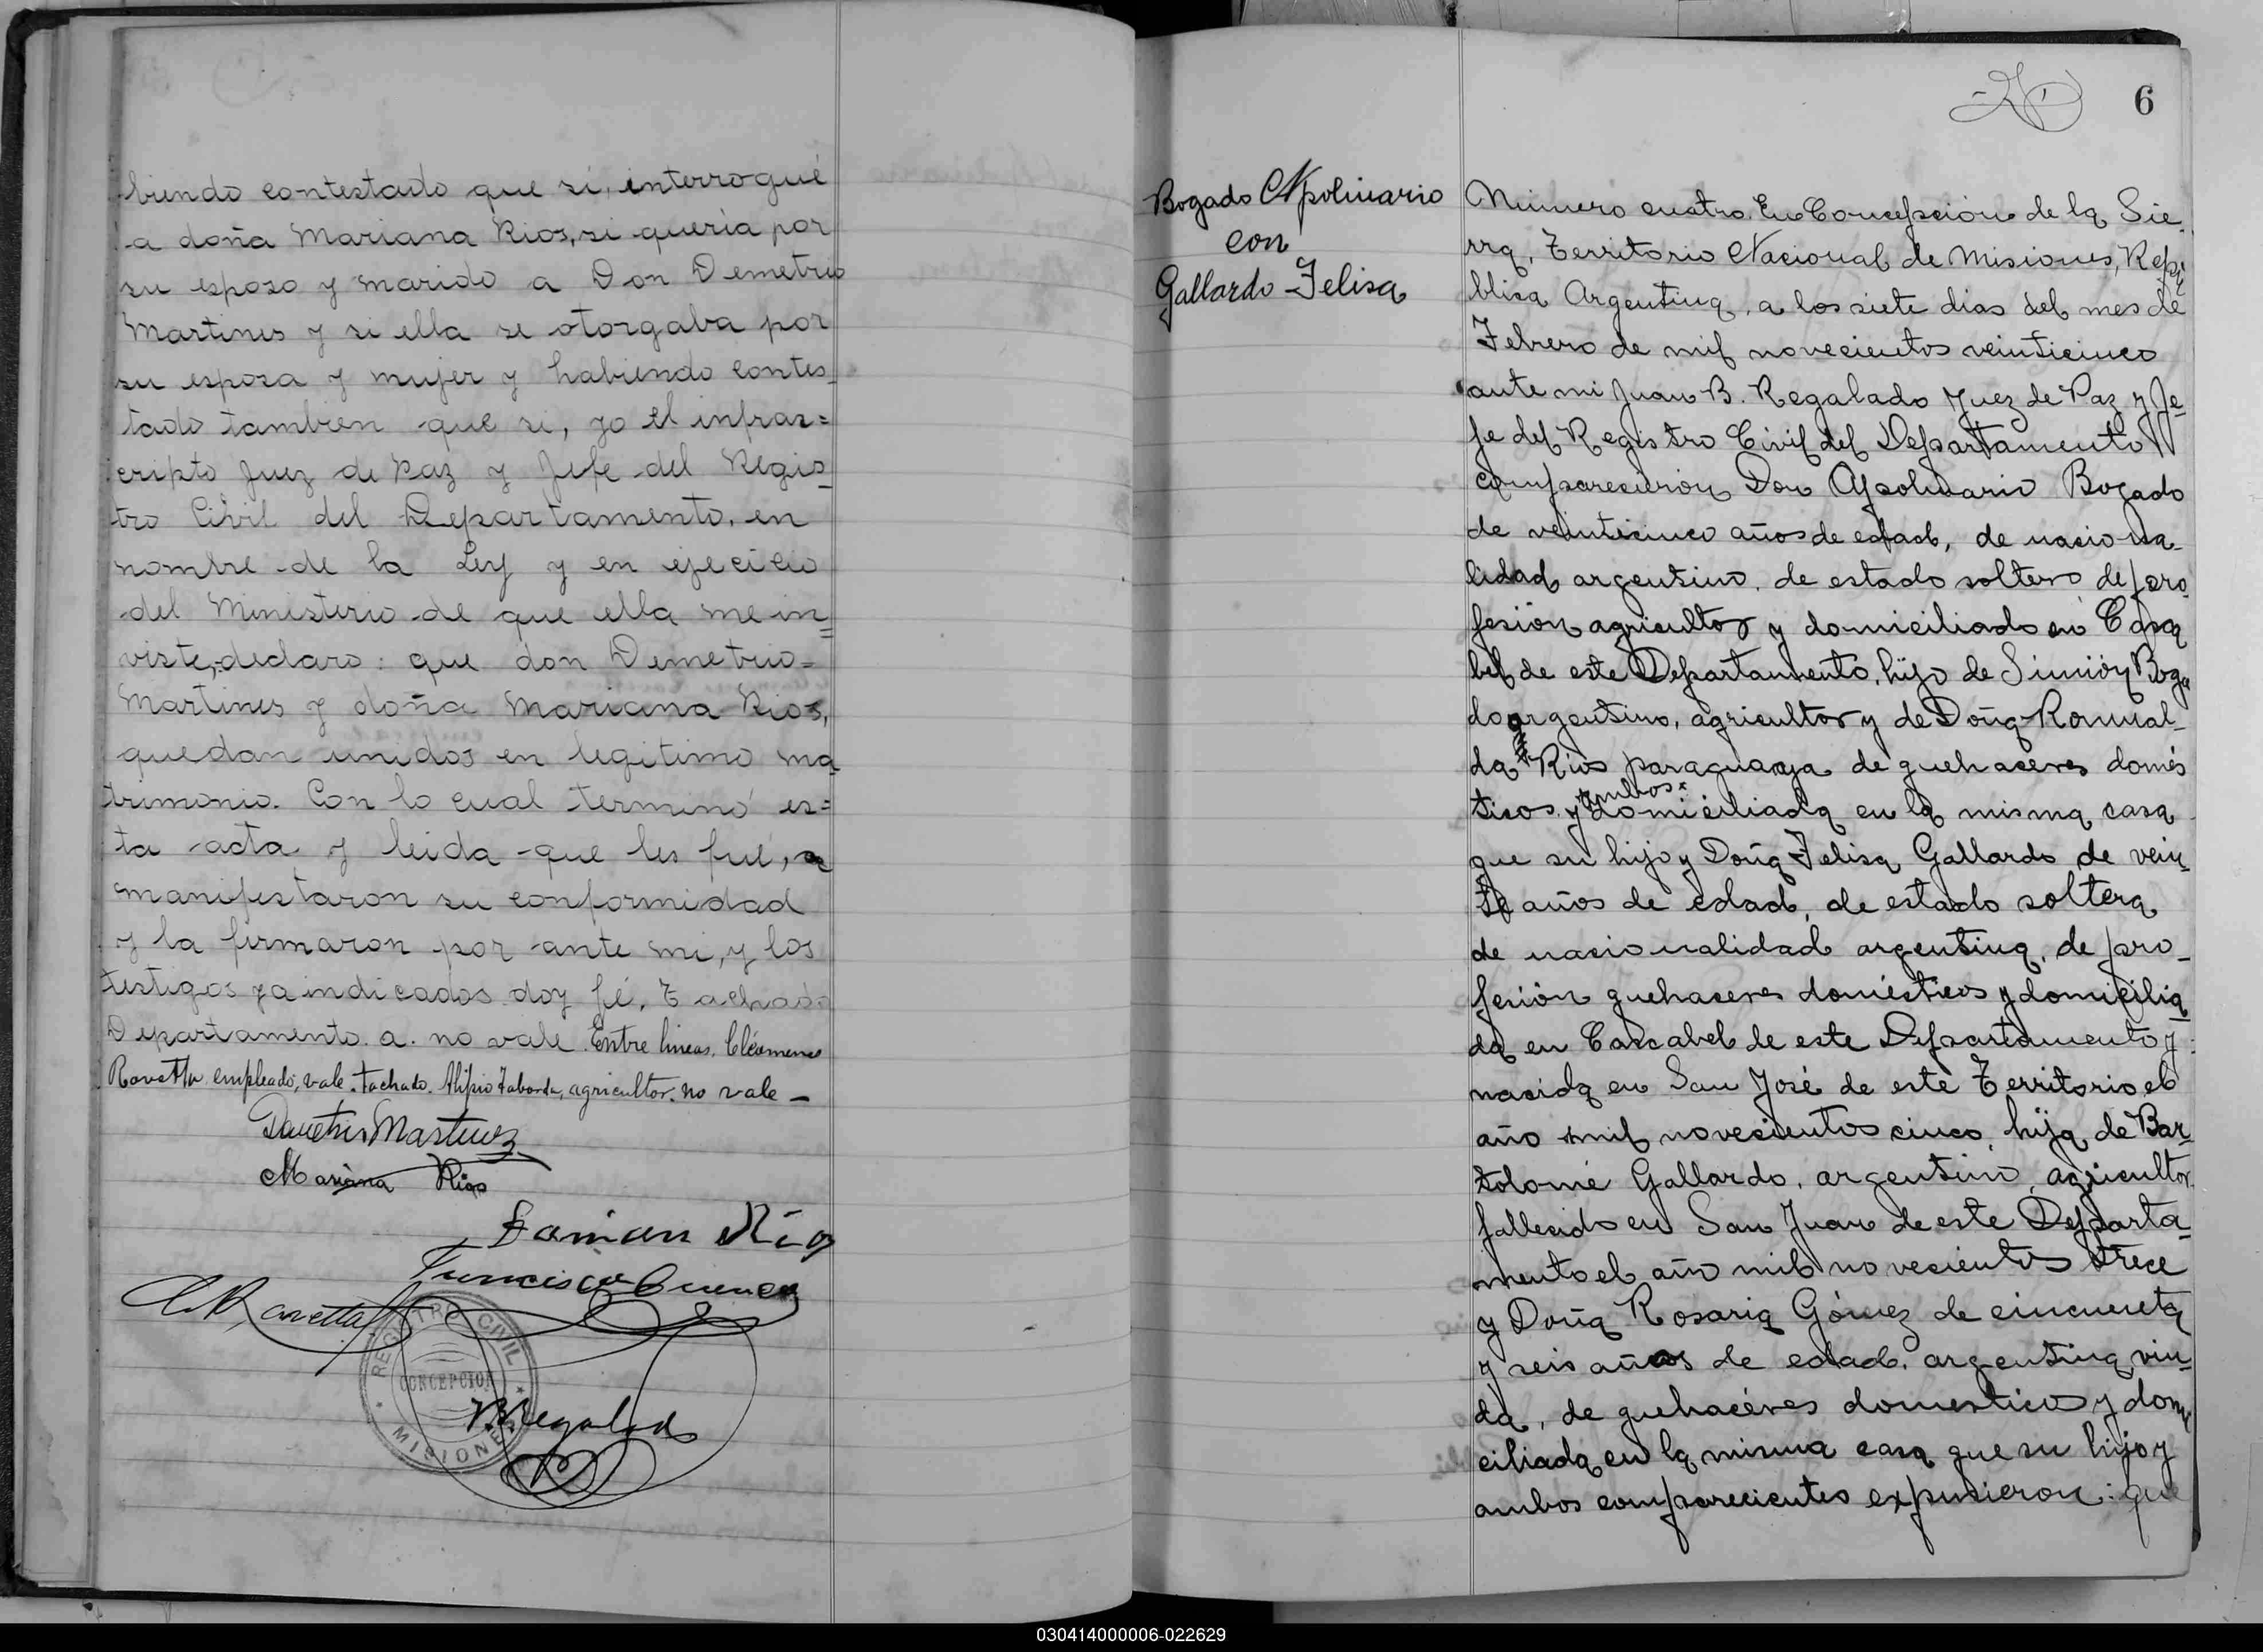 biendo contestado que si, interrogué
a doña Mariana Rios, si quería por
su esposo y marido a Don Demetrio
Martines y si ella se otorgaba por
su esposa y mujer y habiendo contes_
tado tambien que si, yo el infras=
cripto Juez de Paz y Jefe del Regis_
tro Civil del Departamento, en
nombre de la Ley y en ejecicio
del Ministerio de que ella me in=
viste, declaro: que don Demetrio-
Martines y doña Mariana Rios,
quedan unidos en legitimo ma_
trimonio. Con lo cual terminó es=
ta acta y leida que les fué, a
manifestaron su conformidad
y la firmaron por ante mi, y los
testigos ya indicados doy fé. Tachado
Departamento. a. no vale. Entre lineas. Cléomenes
Rovetta empleado, vale. Tachado. Alipio Taborda, agricultor. no vale _
Demetrio Martinez
Mariana Rios
Damian Rios
Francisco Cuenca
C. Ravetta
REGISTRO CIVIL
CONCEPCION
MISIONES
Regalado
6
Bogado Apolinario
con
Gallardo Felisa
Número cuatro. En Concepción de la Sie_
rra, Territorio Nacional de Misiones, Repú
blica Argentina, a los siete dias del mes de
Febrero de mil novecientos veinticinco
ante mi Juan B. Regalado Juez de Paz y Je_
fe del Registro Civil del Departamento
comparecieron Don Apolinario Bogado
de veinticinco años de edad, de naciona_
lidad argentino, de estado soltero de pro_
fesión agricultor y domiciliado en Casca
bel de este Departamento, hijo de Simión Boga
do argentino, agricultor y de Doña Romual_
da Rios paraguaya de quehaceres domés
ambos
ticos y domiciliada en la misma casa
que su hijo y Doña Felisa Gallardo de vein_
te años de edad, de estado soltera
de nacionalidad argentina, de pro_
fesión quehaceres domésticos y domicilia_
da en Cascabel de este Departamento y
nacida en San José de este Territorio el
año mil novecientos cinco, hija de Bar_
tolomé Gallardo, argentino, agricultor
fallecido en San Juan de este Departa_
mento el año mil novecientos trece
y Doña Rosaria Gómez de cincuenta
y seis años de edad, argentina, viu_
da, de quehacéres domesticos y domi
ciliada en la misma casa que su hijo y
ambos comparecientes expusieron: que
030414000006-022629